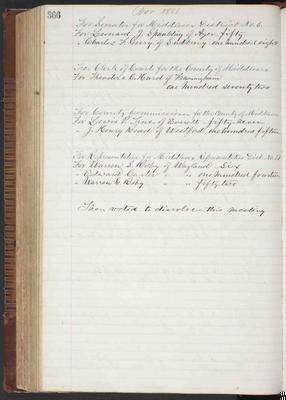 366
Nov 1881
For Senator for Middlesex District No 6.
For Leonard J. Spaulding of Ayer fifty
" Charles F. Gerry of Sudbury one hundred eight
For Clerk of Courts for the County of Middlesex
For Theodore C. Hurd of Framingham
one hundred seventy two
For County Commissioner for the County of Middlesex
For Lewis P. True of Everett fifty
" J. Henry Read of Westford one hundred fifteen
For Representative for Middlesex Representative Dist. No
For Warren L. Roby of Wayland Six
" Edward Carter " " one hundred fourteen
" Warren G. Roby " " fifty two
Then voted to dissolve this meeting